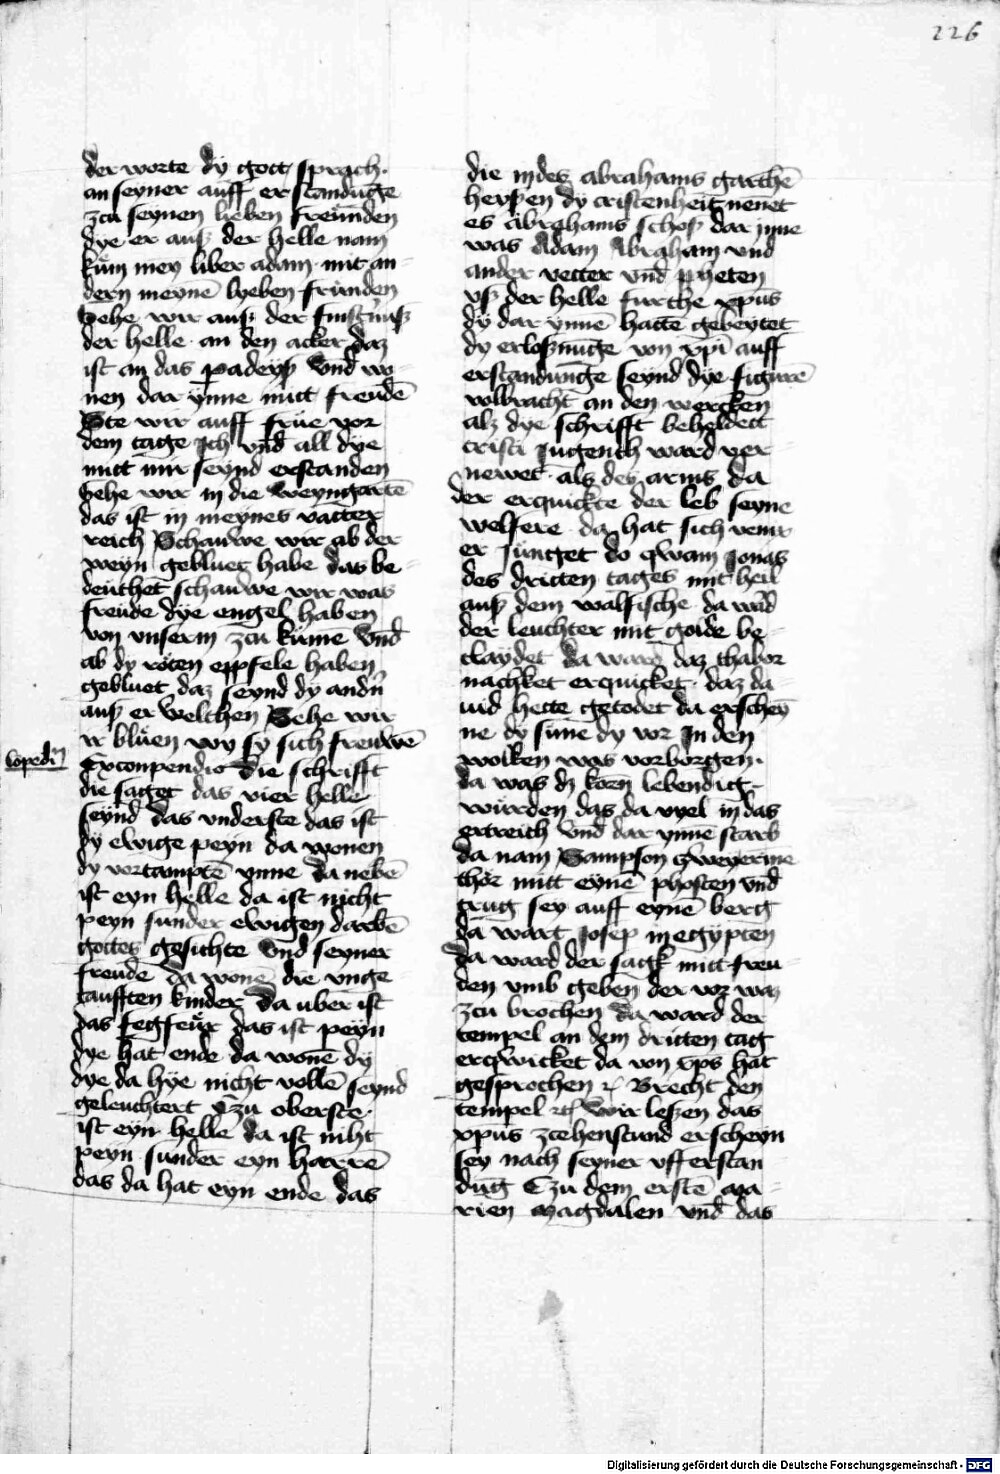 226
der worte dÿ gott sprach
an seyner auff erstandūge
zcu seynen lieben freünden
dye er auß der helle nam
kům mey liber adam mit an-
dern meynē lyeben fründen
Gehe wir auß der finstnūß
der helle an den acker daz
ist an das padeyß Vnd wo-
nen dar ynne mitt freudē
Ste wir auff frůe vor
dem tage Ich vnd all dye
mitt mir seynd erstanden
Gehe wir in die weyngartē
das ist in meynes vatter
reich Schauwe wir ab der
weyn gebluet habe das be-
deuthet schauwe wir was
freude dye engel haben
von vnserm zcu kume Vnd
ab dy roten eppfele haben
gebluet daz seynd dy andn
auß er welchen Sehe wir
bluen wy sy sich freuwē
lopedi
Exconpendio die schrifft
die saget das vier helle
seynd das vnderste das ist
dy ewige peyn da wonen
dy vortamptē ynne da nebē
ist eyn helle da ist nicht
peyn sunder ewigen darbē
gottes gesichte Vnd seyner
freude da wonē die vnge-
taufften kinder Da uber ist
das fegfeur das ist peyn
dye hat ende da wonē dy
dye da hye nicht vollē seynd
geleuchtert Czu oberste
ist eyn helle da ist niht
peyn sunder eyn harrē
das da hat eyn ende das
die indes abrahams garthē
heyßen dy cristenheit nenet
es abrahams schoß dar jnne
was Adam Abraham vnd
ander vetter vnd ppheten
vß der helle furthe xpūs
dy dar ynnē hattē gebeytet
dy erloßnūge von xpi auff
erstandunge seynd dye figurē
volbracht an den wercken
alz dye schrifft beheldett
cristi Jugenth ward ver
newet als dez arms da
der erquickte der leb seyne
welfere da hat sich
er junget do qwam Jonas
des dritten tages mit heil
auß dem walfische da wad
der leuchter mit golde be-
claydet da ward daz thabor
nachket erquicket daz da-
uid hette getodet da erschey
ne dy sūne dy vor In den
wolken was vorborgen
da was dz korn lebendig
würden das da vyel in das
ertreich Vnd dar ynne starb
da nam Sampson
thor mitt eynē phosten vnd
trug sey auff eynē berg
da wart Josep in egyptēn
da ward der sagk mitt freu-
den vmb geben der vor waz
zcu brochen da ward der
tempel an dem dritten tag
erqwicket da von xps hat
gesprochen Brecht den
tempel wir leßen das
xpūs zcehenstund erscheyn
sey nach seyner vfferstan
dūg Czu dem erstē ma-
rien magdalen vnd das
Digitalisierung gefördert durch die Deutsche Forschungsgemeinschaft - DFG